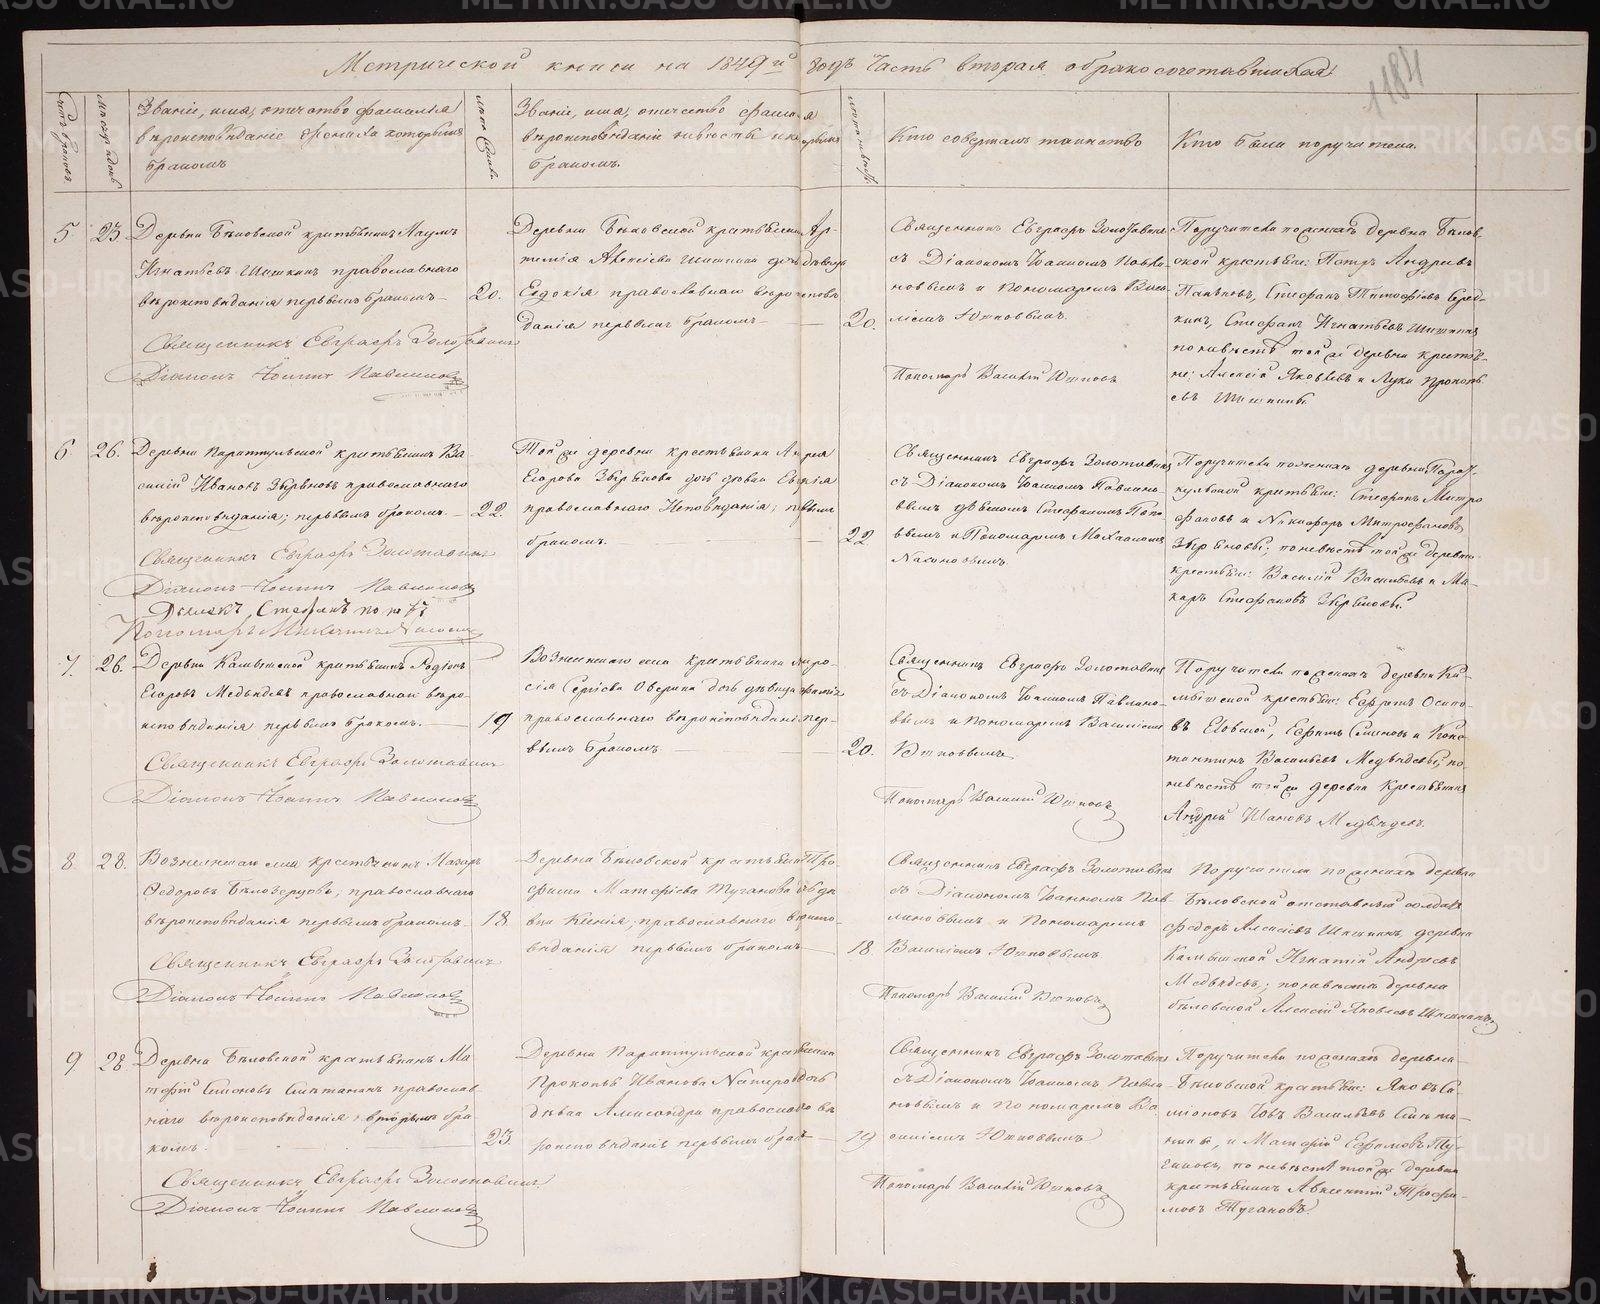 Метрической книги на 1849й годъ Часть вторая о бракосочетавшихся
1184
Счетъ браковъ
Месяцъ и день
Званіе, имя, отечество фамилія
вѣроисповѣданіе жениха которымъ
бракомъ
лета жениха
Званіе, имя, отечество фамилія
вѣроисповѣданіе невѣсты и которымъ
бракомъ.
лета невѣсты
Кто совершалъ таинство
Кто были поручители.
5
23
Деревни Бѣловской крестьянинъ Наумъ
Игнатьевъ Шишкинъ православнаго
вѣроисповѣданія первымъ бракомъ
20.
Священникъ Евграфъ Золотавинъ
Діаконъ Іоаннъ Павлиновъ
Деревни Бѣловской крестьянина Ар-
темія Алексѣева Шишкина дочь дѣвица
Евдокія православнаго вѣроисповѣ
данія первымъ бракомъ
20.
Священникъ Евграфъ Золотавинъ
съ Діакономъ Іоанномъ Павли-
новымъ и Пономаремъ Васи-
ліемъ Ютновымъ.
Пономарь Василій Ютновъ
Поручители по женихѣ деревни Бѣлов-
ской крестьяне: Петръ Андреевъ
Стефанъ Тимофѣевъ Серед-
кинъ, Стефанъ Игнатьевъ Шишкинъ
по невѣстѣ той же деревни крестья-
не: Алексій Яковлевъ и Лука Прокопь-
евъ Шишкины.
6
26.
Деревни крестьянинъ Ва-
силій Ивановъ Звѣревъ православнаго
вѣроисповѣданія; первымъ бракомъ.
22.
Священникъ Евграфъ Золотавинъ
Діаконъ Іоаннъ Павлиновъ
Дьячекъ, Стефанъ Поповъ
Пономарь
Той же деревни крестьянина Андрея
Егорова дочь дѣвица
православнаго Исповѣданія; первымъ
бракомъ.
22
Священникъ Евграфъ Золотавинъ
съ Діакономъ Іоанномъ Павлино-
вымъ дьячкомъ Стефаномъ Попо-
вымъ и Пономаремъ
Поручители по женихѣ деревни
крестьяне: Стефанъ Митро
фановъ и Никифоръ Митрофановъ
по невѣстѣ той же деревни
крестьяне: Василій Васильевъ и Ма-
каръ Стефановъ
7.
26.
Деревни Камышской крестьянинъ Родіонъ
Егоровъ Медвѣдевъ православнаго вѣро-
исповѣданія первымъ бракомъ.
19
Священникъ Евграфъ Золотавинъ
Діаконъ Іоаннъ Павлиновъ
Вознесенскаго села крестьянина
Сергіева Оверина дочь дѣвица
православнаго вѣроисповѣданія пер-
вымъ бракомъ
20.
Священникъ Евграфъ Золотавинъ
съ Діакономъ Іоанномъ Павлино-
вымъ и пономаремъ Василіемъ
Ютновымъ
Пономарь Василій Ютновъ
Поручители по женихѣ деревни Ка-
мышской крестьяне: Ефремъ Осипо-
въ и Конс-
тантинъ Васильевъ Медвѣдевы, по
невѣстѣ той же деревни Крестьянинъ
Андрей Ивановъ Медвѣдевъ.
8
28.
Вознесенскаго села крестьянинъ Назаръ
Ѳедоровъ Бѣлозерцовъ, православнаго
вѣроисповѣданія первымъ бракомъ
18
Священникъ Евграфъ Золотавинъ
Діаконъ Іоаннъ Павлиновъ
Деревни Бѣловской крестьянина Тро-
фима Матфіева Туганова дочь дѣ-
вица Ксенія, православнаго вѣроиспо-
вѣданія первымъ бракомъ
18
Священникъ Евграфъ Золотавинъ
съ Діакономъ Іоанномъ Пав-
линовымъ и Пономаремъ
Василіемъ Ютновымъ
Пономарь Василій Ютновъ
Поручители по женихѣ деревни
Бѣловской отставный солдатъ
Федоръ Алексѣевъ Шишкинъ, деревни
Камышской Игнатій Андреевъ
Медвѣдевъ; по невѣстѣ деревни
бѣловской Алексій Яковлевъ Шишкинъ
9
28
Деревни Бѣловской крестьянинъ Ма-
тфій Симоновъ Сметанинъ православ
наго вѣроисповѣданія вторымъ бра-
комъ.
23.
Священникъ Евграфъ Золотавинъ
Діаконъ Іоаннъ Павлиновъ
Деревни крестьянина
Прокопія Иванова дочь
дѣвица Александра православнаго вѣ
роисповѣданія первымъ бракомъ
19
Священникъ Евграфъ Золотавинъ
съ Діакономъ Іоанномъ Павли-
новымъ и Пономаремъ Ва-
силіемъ Ютновымъ
Пономарь Василій Ютновъ
Поручители по женихѣ деревни
Бѣловской крестьяне: Яковъ Си-
міоновъ Іовъ Васильевъ Смета-
нины, и Матфій Ефимовъ Ту-
гановъ, по невѣстѣ той же деревни
крестьянинъ Авксентій Трофи-
мовъ Тугановъ.
METRIKI.GASO-URAL.RU